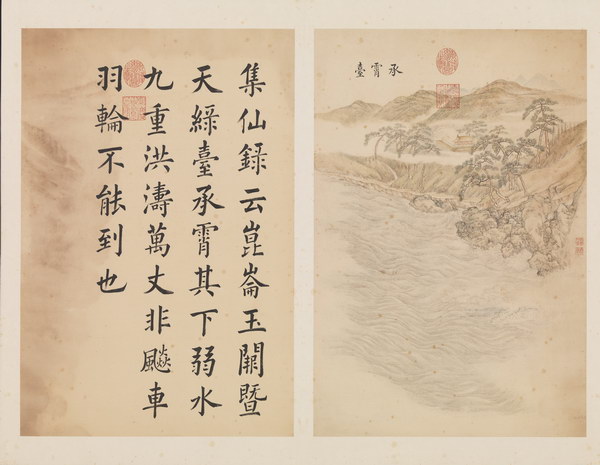 承霄臺
集仙錄云崑崙玉闕暨
天綠臺承霄其下弱水
九重洪濤萬丈非飈車
羽輪不能到也